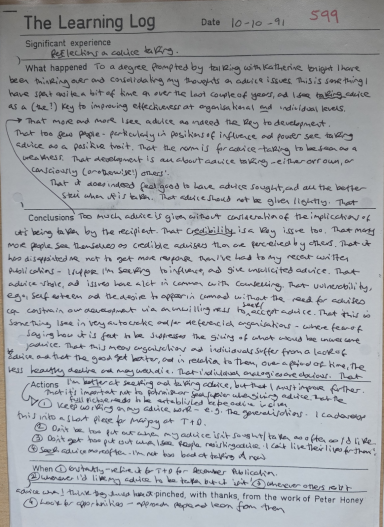 The Learning Log Date 10-10-91 599
Significant experience
Reflections on advice taking.
What happened To a degree prompted by talking with Katherine tonight I have
been thinking over and consolidating my thoughts on advice issues. This is something I
have spent quite a bit of time on over the last couple of years, and I see taking advice
as a (the!) key to improving effectiveness at organisational and individual levels.
That more and more I see advice as indeed the key to development.
That too few people - particularly in positions of influence and power see taking
advice as a positive trait. That the norm is for advice-taking to be seen as a
weakness. That development is all about advice taking - either our own, or
consciously (or otherwise!) others'.
That it does indeed feel good to have advice sought, and all the better
still when it is taken. That advice should not be given lightly. That
Conclusions Too much advice is given without consideration of the implications of
it's being taken by the recipient. That credibility is a key issue too. That many
more people see themselves as credible advisers than are perceived by others. That it
has disappointed me not to get more response than I've had to my recent written
publications - I suppose I'm seeking to influence, and give unsolicited advice. That
advice-, and issues have a lot in common with counselling. That vulnerability,
e.g. self esteem and the degree to appear in command without the need for advice
can constrain our development via an unwillingness to seek/accept advice. That this is
something I see in very autocratic and/or deferential organisations - where fear of
saying how it is felt to be suppresses the giving of what would be unwelcome
advice. That this means organisations and individuals suffer from a lack of
advice and that the good get better, and in relation to them, over a period of time, the
less healthy decline and may well die. That individual analogies are obvious. That
Actions I'm better at seeking and taking advice, but that I must improve further.
That it's important not to when giving advice, that the
full picture needs to be established before advice is given
① Keep working on my advice work - e.g. the generalisations - I can develop
this into a short piece for T + D.
② Don't be too put out when my advice isn't sought / taken as often as I'd like.
③ Don't get too put out when I see people resisting advice. I can't live their lives for them!
④ Seek advice more often - I'm not too bad at taking it now
When ① Instantly - refine it for T+D for December Publication.
② Whenever I'd like my advice to be taken but it isn't ③ whenever others resist
advice when I think they should
pinched, with thanks, from the work of Peter Honey
④ Look for opportunities - approach people and learn from them